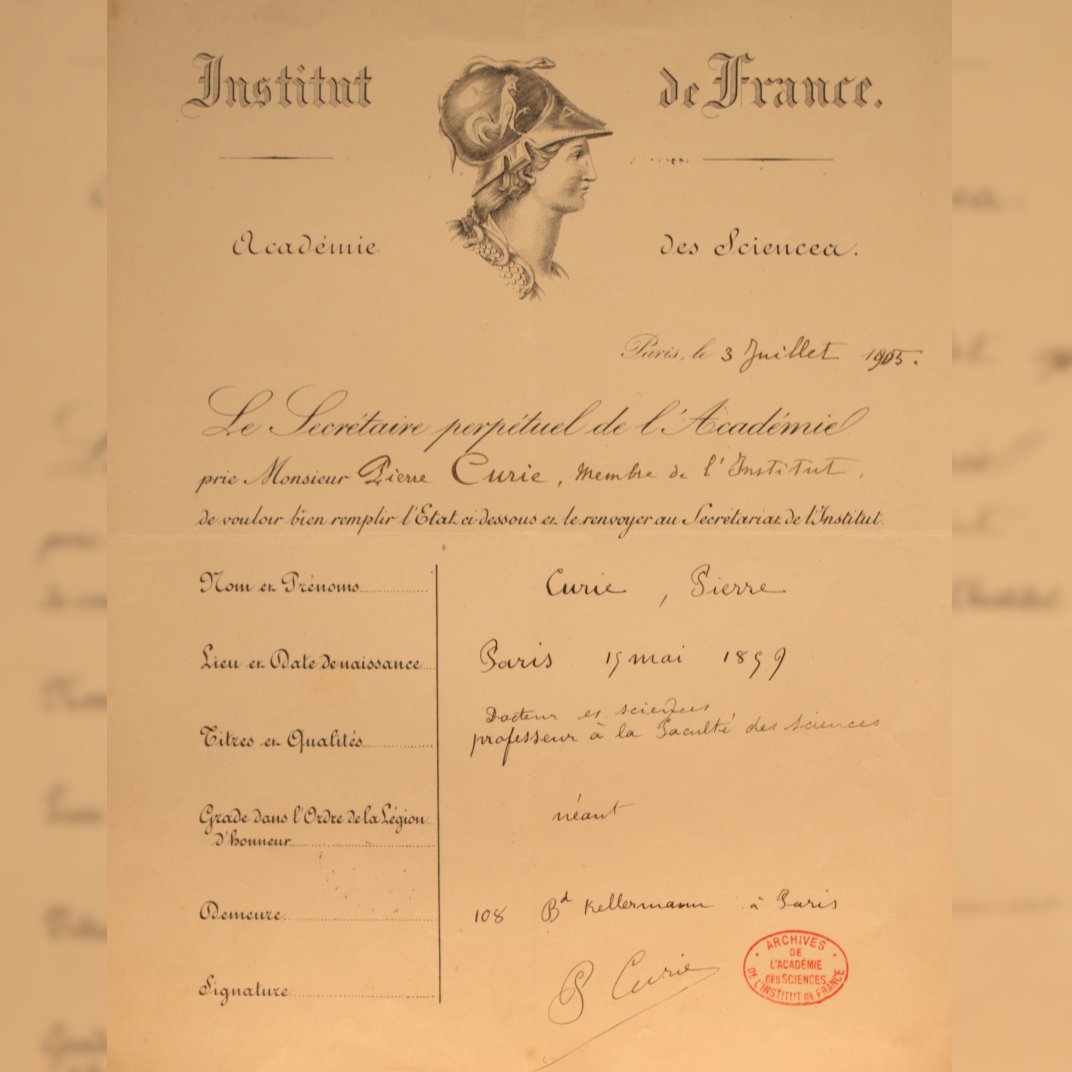 Institut de France.
Académie des Sciences.
Paris, le 3 Juillet 1905.
Le Secrétaire perpétuel de l'Académie
prie Monsieur Pierre Curie, Membre de l'Institut,
de vouloir bien remplir l'Etat ci-dessous et le renvoyer au Secrétariat de l'Institut.
Nom et Prénoms Curie, Pierre
Lieu et Date de naissance Paris 15 mai 1859
Titres et Qualités Docteur es sciences
professeur à la Faculté des sciences
Grade dans l'Ordre de la Légion
d'honneur néant
Demeure 108 Bd Kellermann à Paris
Signature P Curie
ARCHIVES
DE
L'ACADÉMIE
DES SCIENCES
DE L'INSTITUT DE FRANCE